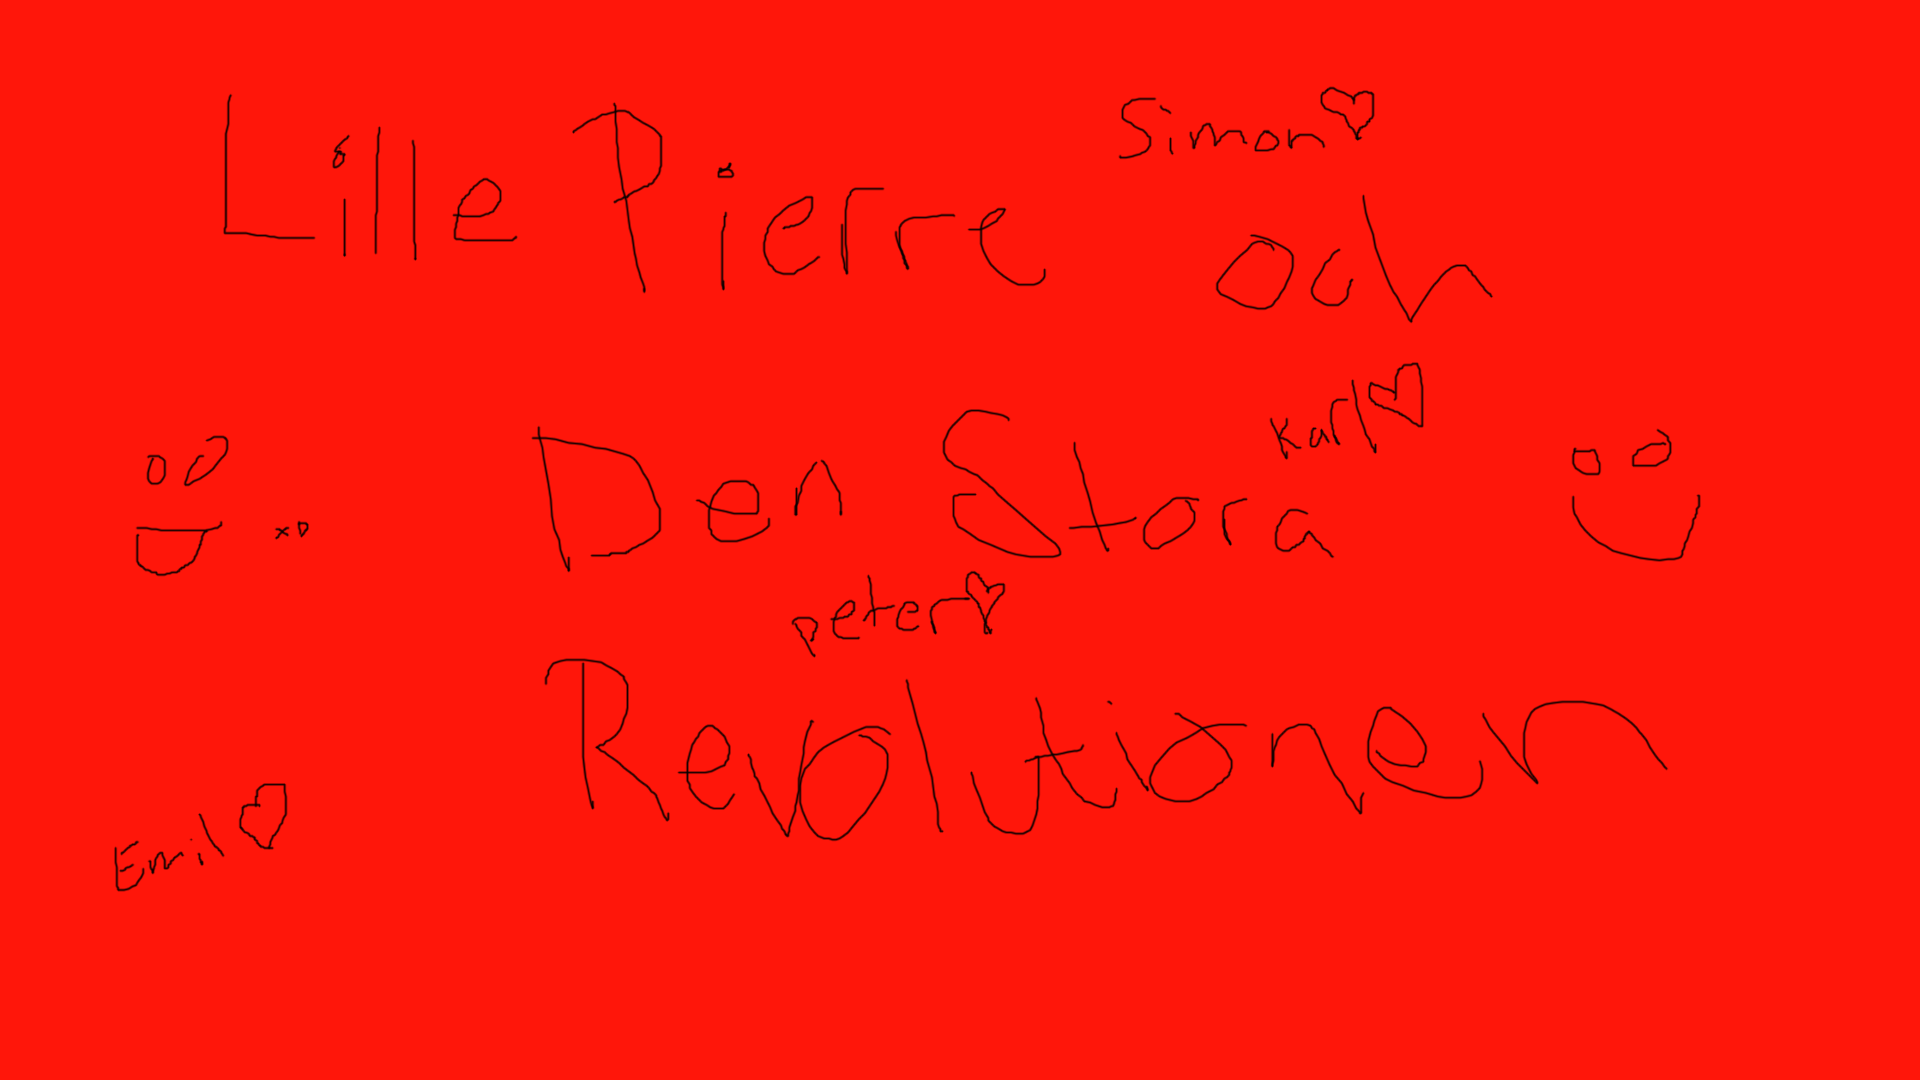 Simon
Lille Pierre och
Karl
Den Stora
xD
peter
Revolutionen
Emil